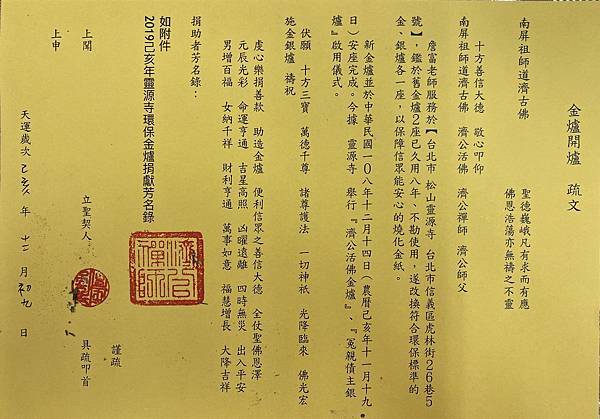 金爐開爐　疏文
聖德巍峨凡有求而有應
佛恩浩蕩亦無禱之不靈
南屏祖師道濟古佛
十方善信大德　敬心叩仰
南屏祖師道濟古佛　濟公活佛　濟公禪師　濟公師父
詹富老師服務於【台北市　松山靈源寺　台北市信義區虎林街26巷5
號】，鑑於舊金爐2座已久用八年、不勘使用，遂改換符合環保標準的
金、銀爐各一座，以保障信眾能安心的燒化金紙。
新金爐並於中華民國一0八年十二月十四日（農曆己亥年十一月十九
日）安座完成。今據　靈源寺　舉行『濟公活佛金爐』、『冤親債主銀
爐』啟用儀式。
伏願　十方三寶　萬德千尊　諸尊護法　一切神祇　光降臨來　佛光宏
施金銀爐　禱祝
虔心樂捐善款　助造金爐　便利信眾之善信大德　全仗聖佛恩澤
元辰光彩　命運亨通　吉星高照　凶曜遠離　四時無災　出入平安
男增百福　女納千祥　財利亨通　萬事如意　福慧增長　大降吉祥
捐助者芳名錄：
如附件
2019己亥年靈源寺環保金爐捐獻芳名錄
謹疏
上聞
濟公禪師
上申
立聖契人
具疏叩首
天運歲次 乙亥 年 十二 月 初九 日